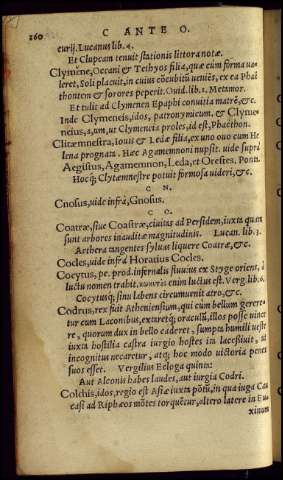 160 C ANTE O.
eurij. Lucanus lib. 4.
Et Clupeam tenuit stationis littora notæ.
Clymĕne, Oceani & Tethyos filia, quæ cùm forma ua-
leret, Soli placuit, in cuius cōcubitū ueniēs, ex ea Phaë
thontem & sorores peperit. Ouid. lib. 1. Metamor.
Et tulit ad Clymenen Epaphi conuitia matrē, &c.
Inde Clymeneis, idos, patronymicum, & Clyme-
neius, a, um, ut Clymeneia proles, id est, Phaëthon.
Clitæmnestra, Iouis & Ledæ filia, ex uno ouo cum He
lena prognata. Hæc Agamemnoni nupsit. uide suprà
Aegistus, Agamemnon, Leda, et Orestes. Ponti.
Hocq; Clytæmnestre potuit formosa uideri, &c.
C N.
Cnosus, uide infrà, Gnosus.
C O.
Coatræ, siue Coastræ, ciuitas ad Persidem, iuxta quam
sunt arbores inauditæ magnitudinis. Lucan. lib. 3.
Aethera tangentes syluas liquere Coatræ, &c.
Cocles, uide infrà Horatius Cocles.
Cocytus, pe. prod. infernalis fluuius ex Styge oriens, à
luctu nomen trahit. enim luctus est. Verg. lib. 6.
Cocytusq; sinu labens circumuenit atro, &c.
Codrus, rex fuit Atheniensium, qui cùm bellum gerere-
tur cum Laconibus, extaretq; oraculū, illos posse uince
re, quorum dux in bello caderet, sumpta humili ueste
iuxta hostilia castra iurgio hostes in lacessiuit, ut
incognitus necaretur, atq; hoc modo uictoria penes
suos esset. Vergilius Ecloga quinta:
Aut Alconis habes laudes, aut iurgia Codri.
Colchis, idos, regio est Asiæ iuxta pōtū, in qua iuga Cau
casi ad Riphæos mōtes torquētur, altero latere in Eu
xinum